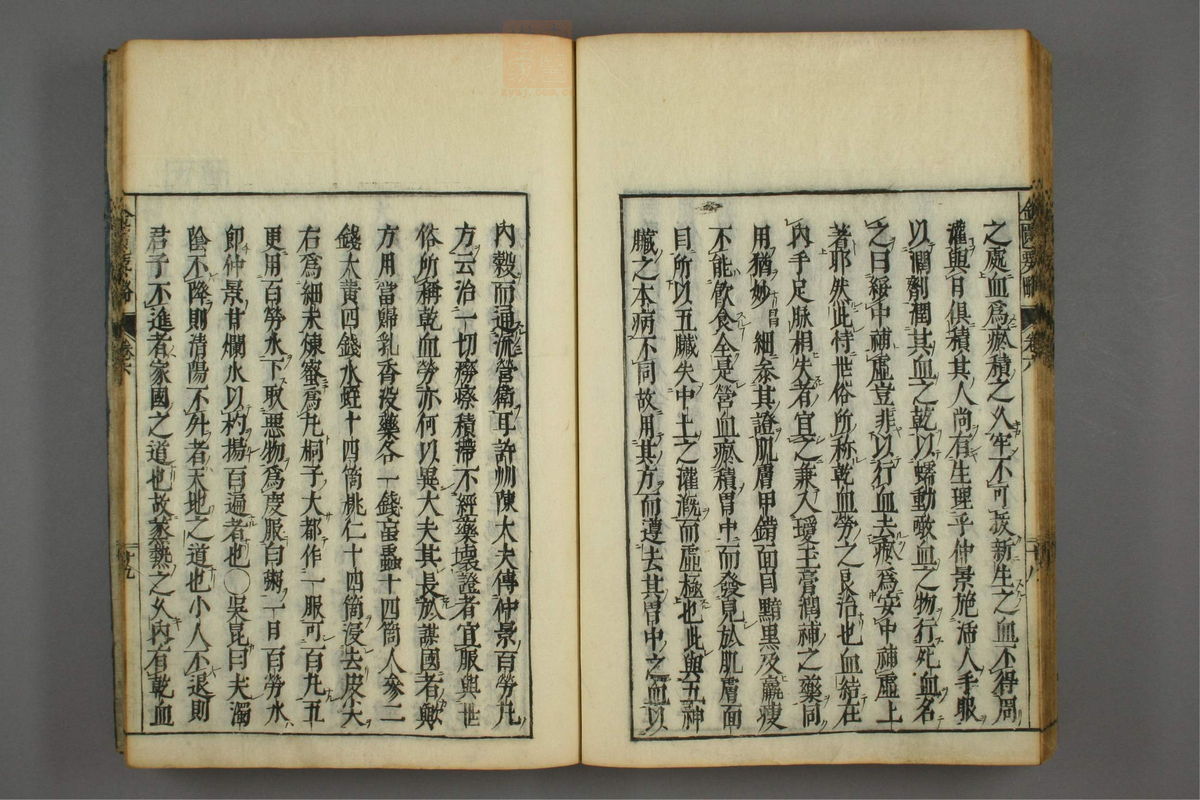 之處血爲瘀積之久牢不可拔新生之血不得周
灌與日俱積其人尚有生理乎仲景施活人手服
以潤劑潤其血之乾以蠕動噉血之物行死血名
之曰緩中補虛豈非以行血去瘀爲安中補虛上
著耶然此特世俗所称乾血勞之良治也血結在
內手足脉相失者宜之兼入瓊玉膏潤補之藥同
用猶妙昌細參其證肌膚甲錯面目黯黒及羸瘦
不能飲食全是營血瘀積胃中而發見於肌膚面
目所以五臟失中土之灌漑而虛極也此與五神
臟之本病不同故用其方而遵去其胃中之血以
內穀而通流營衛耳許州陳大夫傳仲景百勞丸
方云治一切癆瘵積滯不經藥壞證者宜服與世
俗所稱乾血勞亦何以異大夫其長於謀國者歟
方用當歸乳香沒藥各一錢䖟蟲十四箇人參二
錢大黄四錢水蛭十四箇桃仁十四箇浸去皮尖
右爲細末煉蜜爲丸桐子大都作一服可百丸五
更用百勞水下取悪物爲度服白粥一日百勞水
即仲景甘爛水以杓揚百遍者也○吳昆曰夫濁
陰不降則清陽不升者天地之道也小人不退則
君子不進者家國之道也故蒸熱之久內有乾血
金匱要略
卷六
十八
金匱要略
卷六
十九